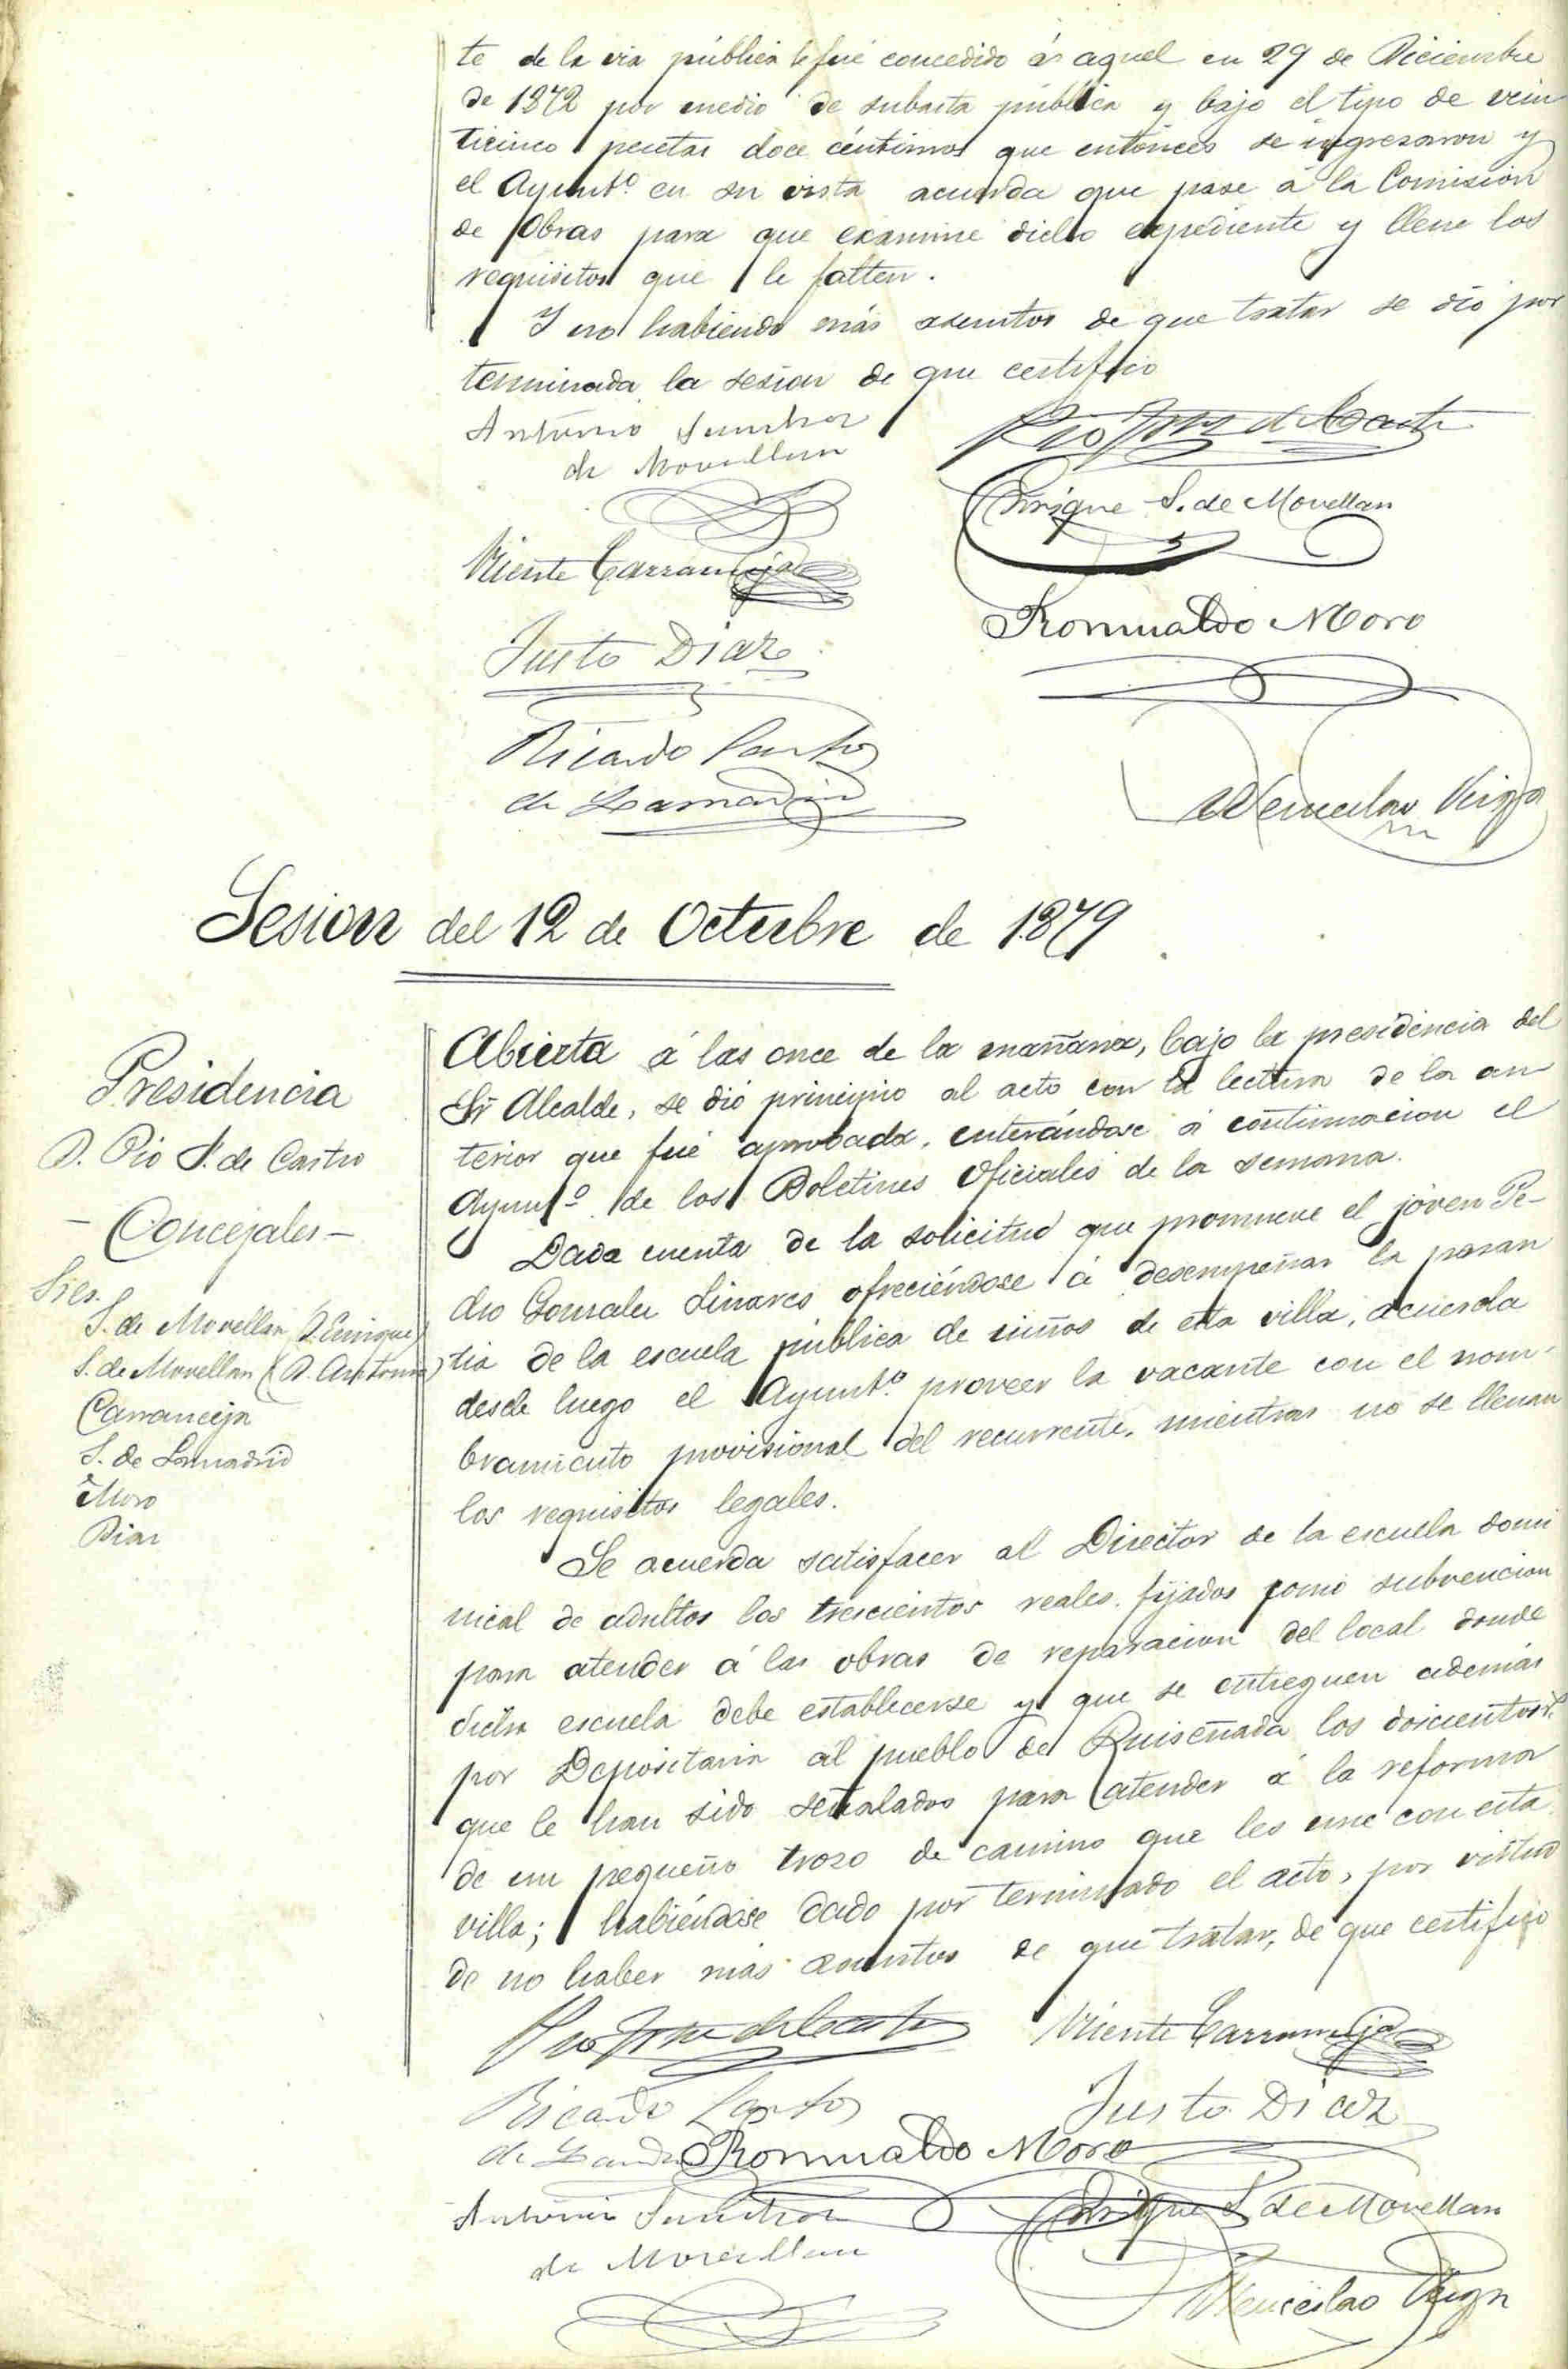 te de la via pública le fué concedido á aquel en 29 de Diciembre
de 1872 por medio de subasta pública y bajo el tipo de vein
ticinco pesetas doce céntimos que entónces se ingresaron y
el Ayunt.º en su vista acuerda que pase á la Comision
de Obras para que examine dicho expediente y llene los
requisitos que le falten.
Y no habiendo más asuntos de que tratar se dió por
terminada la sesion de que certifico
Antonio Sanchez
de Movellan
Pio
de Castro
Enrique S. de Movellan
Vicente Carranceja
Romualdo Moro
Justo Diaz
Ricardo Santos
de Lamadrid
Wenceslao Veiga
Sesion del 12 de Octubre de 1879
Presidencia
D. Pio S. de Castro
- Concejales -
Sres.
S. de Movellan (D. Enrique)
S. de Movellan (D. Antonio)
Carranceja
S. de Lamadrid
Moro
Diaz
Abierta á las once de la mañana, bajo la presidencia del
Sr Alcalde, se dió principio al acto con la lectura de la an
terior que fué aprobada, enterándose á continuacion el
Ayunt.º de los Boletines Oficiales de la semana.
Dada cuenta de la solicitud que promueve el jóven Pe-
dro Gonzalez Linares ofreciéndose á desempeñar la pasan
tia de la escuela pública de niños de esta villa, acuerda
desde luego el Ayunt.º proveer la vacante con el nom-
bramiento provisional del recurrente, mientras no se llenan
los requisitos legales.
Se acuerda satisfacer al Director de la escuela domi
nical de adultos los trescientos reales fijados como subvencion
para atender á las obras de reparacion del local donde
dicha escuela debe establecerse y que se entreguen además
por Depositaria al pueblo de Ruiseñada los doscientos
que le han sido señalados para atender á la reforma
de un pequeño trozo de camino que les une con esta
villa; habiéndose dado por terminado el acto, por virtud
de no haber más asuntos de que tratar, de que certifico
Pio
de Castro
Vicente Carranceja
Ricardo Santos
de
Justo Diaz
Romualdo Moro
Antonio Sanchez
de Movellan
Enrique S. de Movellan
Wenceslao Veiga